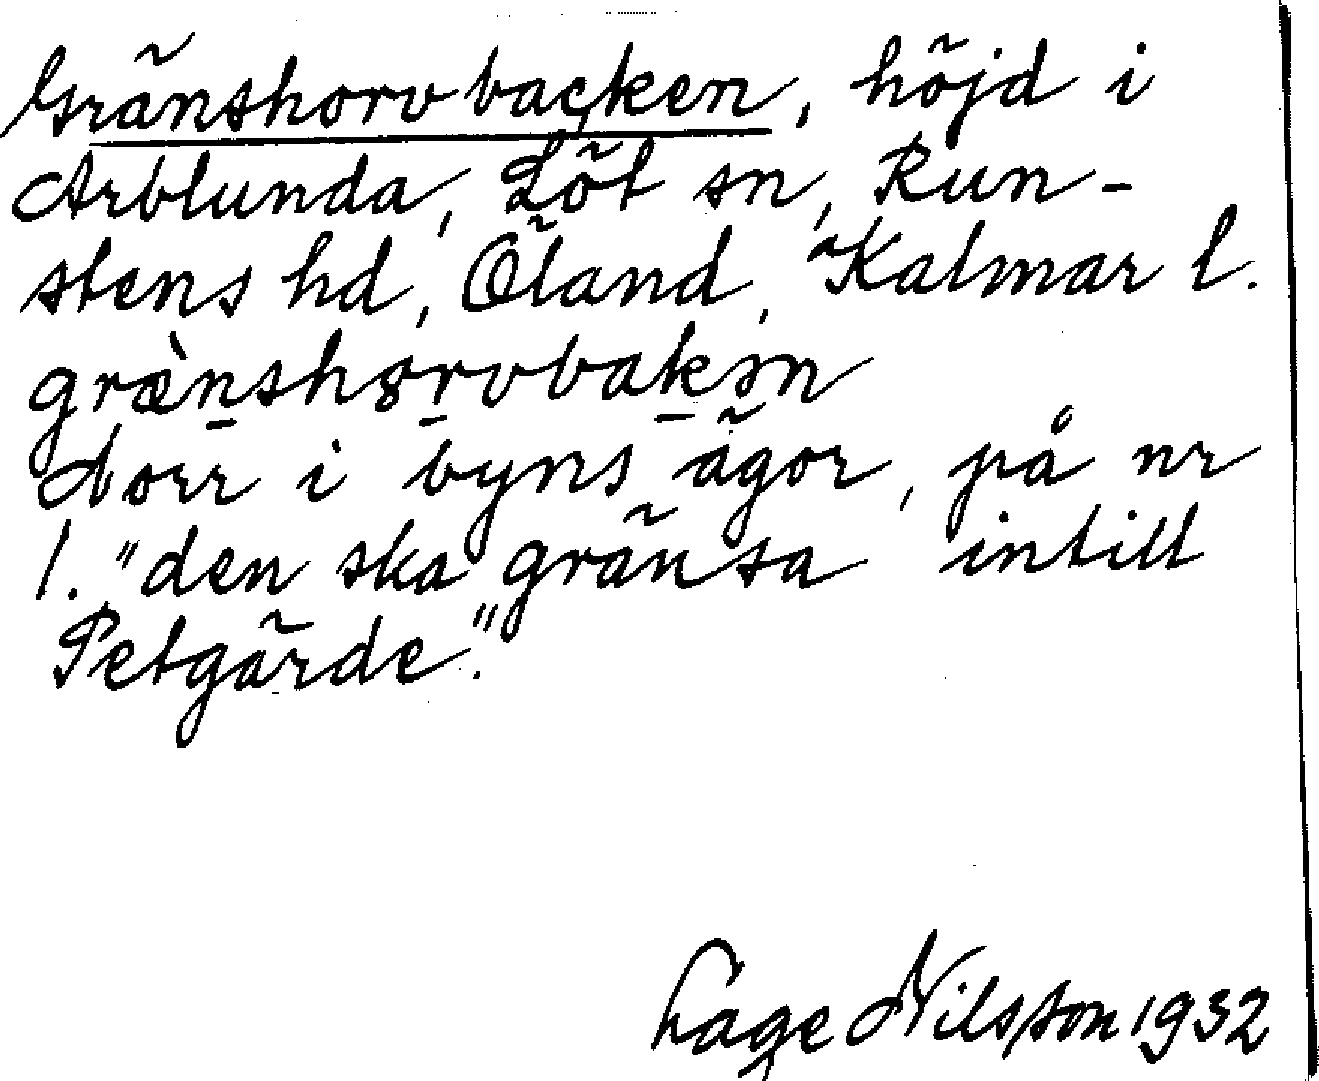 Gränshorvbacken, höjd i
Arblunda, Löt sn, Run-
stens hd, Öland, Kalmar l.
grænshorvbakən
Norr i byns ägor, på nr
1. "den ska gränsa intill
Petgärde".
Lage Nilsson 1932